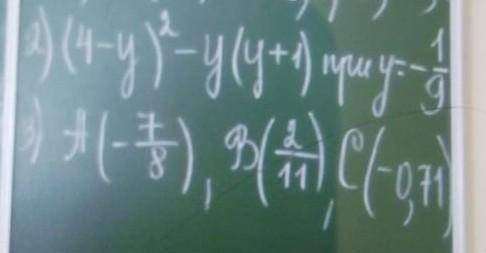 2) (4-y)² - y(y+1) при y=-1/9
3) A(-7/8), B(2/11), C(-0,71)